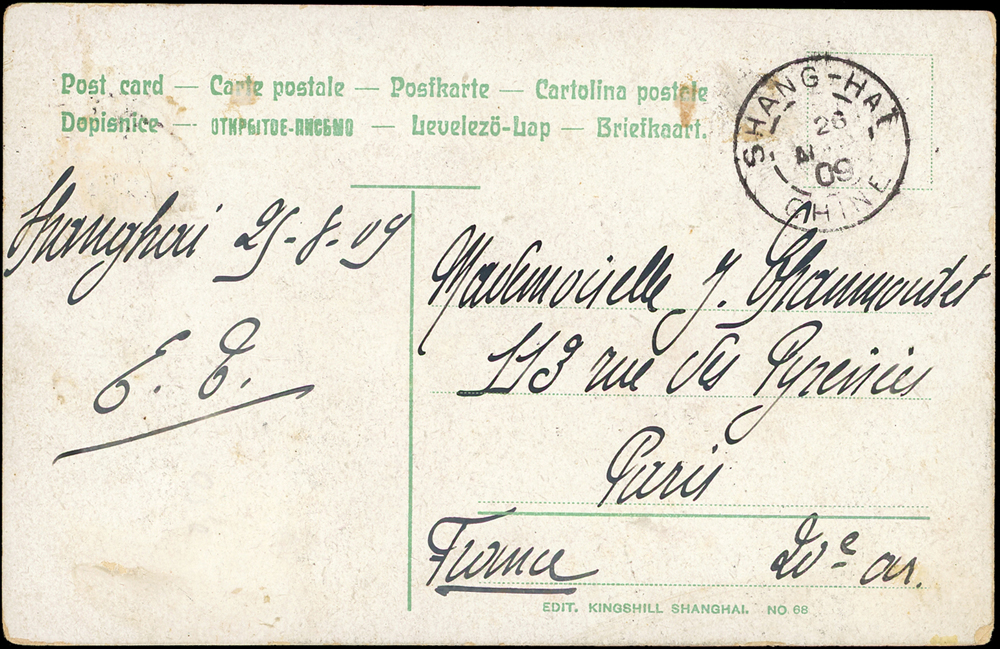 Post card — Carte postale — Postkarte — Cartolina postale
Dopisnice — ОТКРЫТОЕ-ПИСЬМО — Levelezö-Lap — Briefkaart.
SHANG-HAI
26
09
CHINE
Shanghai 25-8-09
E. T.
Mademoiselle J.
113 rue des Pyrénées
Paris
France 20e ar.
EDIT. KINGSHILL SHANGHAI. NO 68